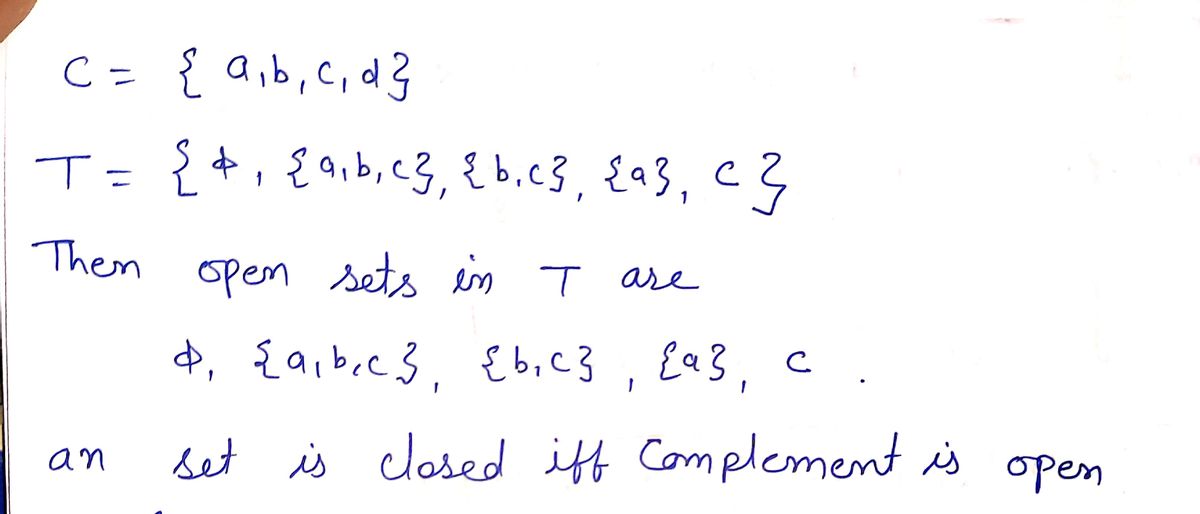 C = { a, b, c, d}
T = { ϕ, {a, b, c}, {b, c}, {a}, C }
Then open sets in T are
ϕ, {a, b, c}, {b, c}, {a}, C .
an set is closed iff Complement is open